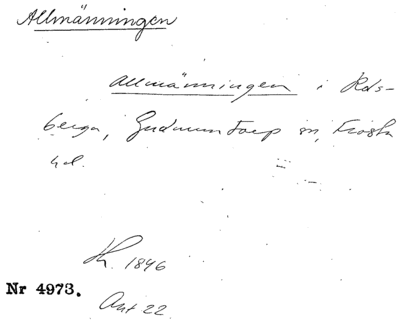 Allmänningen
Allmänningen i Rös-
berga, Gudmuntorp sn, Frosta
hd.
1846
Nr 4973.
Akt 22